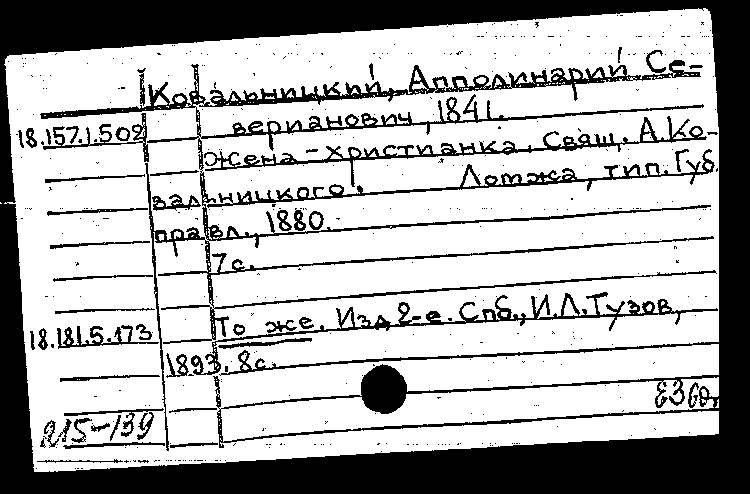 Ковальницкий, Апполинарий Се-
верианович, 1841.
18.157.1.502
Жена-христианка. Свящ. А. Ко-
вальницкого. Ломжа, тип. Губ.
правл., 1880.
7 с.
18.181.5.173 То же. Изд 2-е. Спб., И.Л. Тузов,
1893. 8 с.
215-139